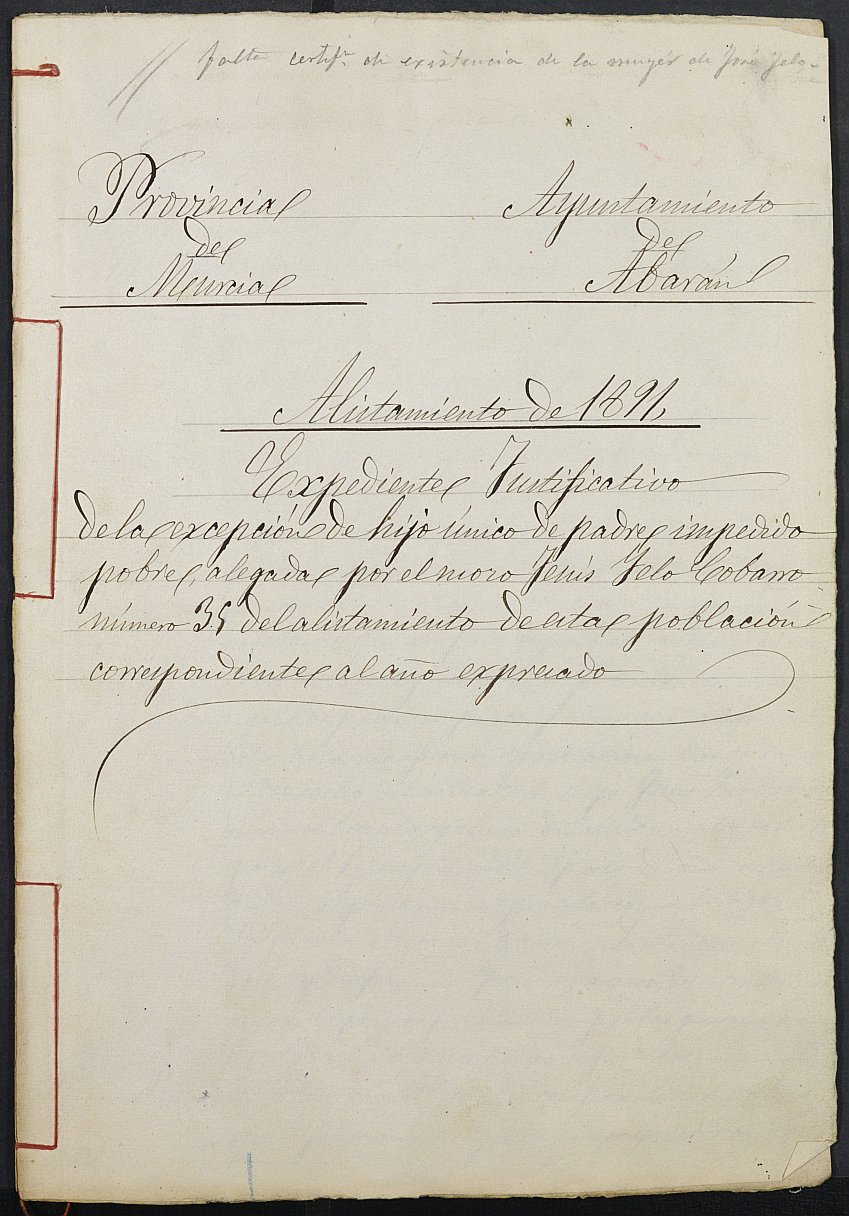 falta certif.n de existencia de la muger de José Yelo
Provincia Ayuntamiento
de de
Murcia Abarán
Alistamiento de 1891,
Expediente Justificativo
de la excepción de hijo único de padre impedido
pobre, alegada por el mozo Jesús Yelo Cobarro
número 35 del alistamiento de esta población
correspondiente al año expresado